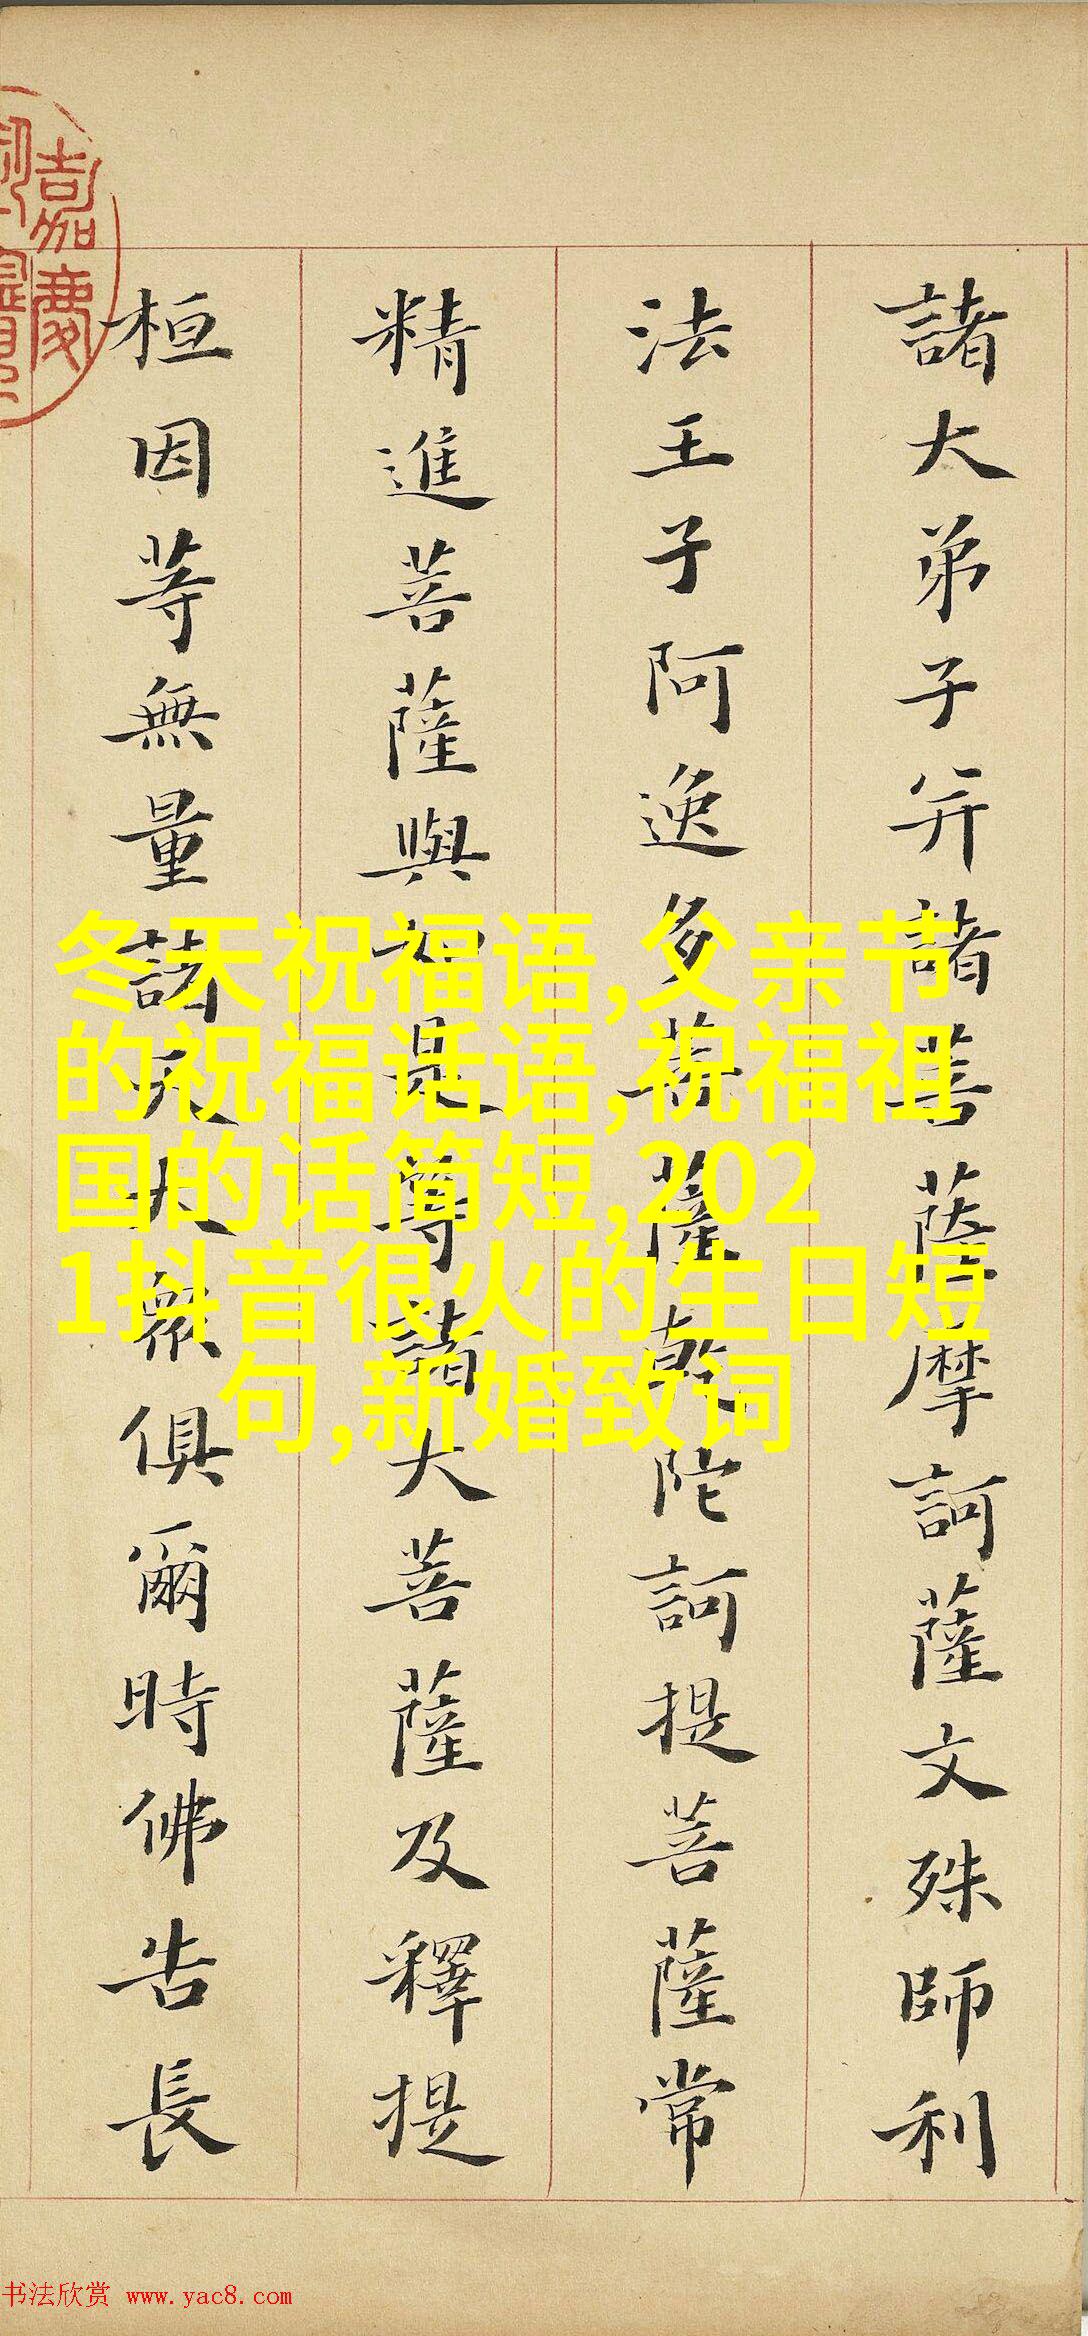 諸大弟子并諸菩薩摩訶薩文殊師利
法王子阿逸多菩薩乾陀訶提菩薩常
精進菩薩與如是等諸大菩薩及釋提
桓因等無量諸天大眾俱爾時佛告長
嘉慶
冬天祝福语,父亲节
的祝福话语,祝福祖
国的话简短,202
1抖音很火的生日短
句,新婚致词
书法欣赏 www.yac8.com